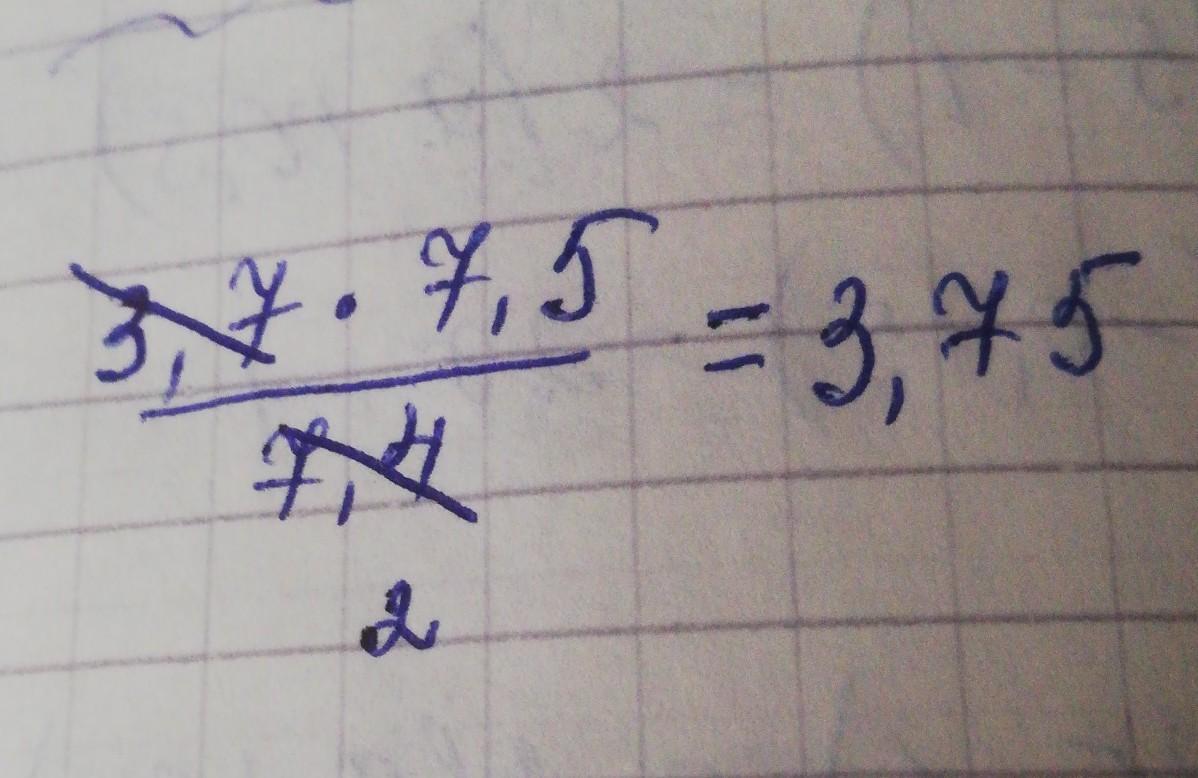 3,7 · 7,5 = 3,75
7,4
2